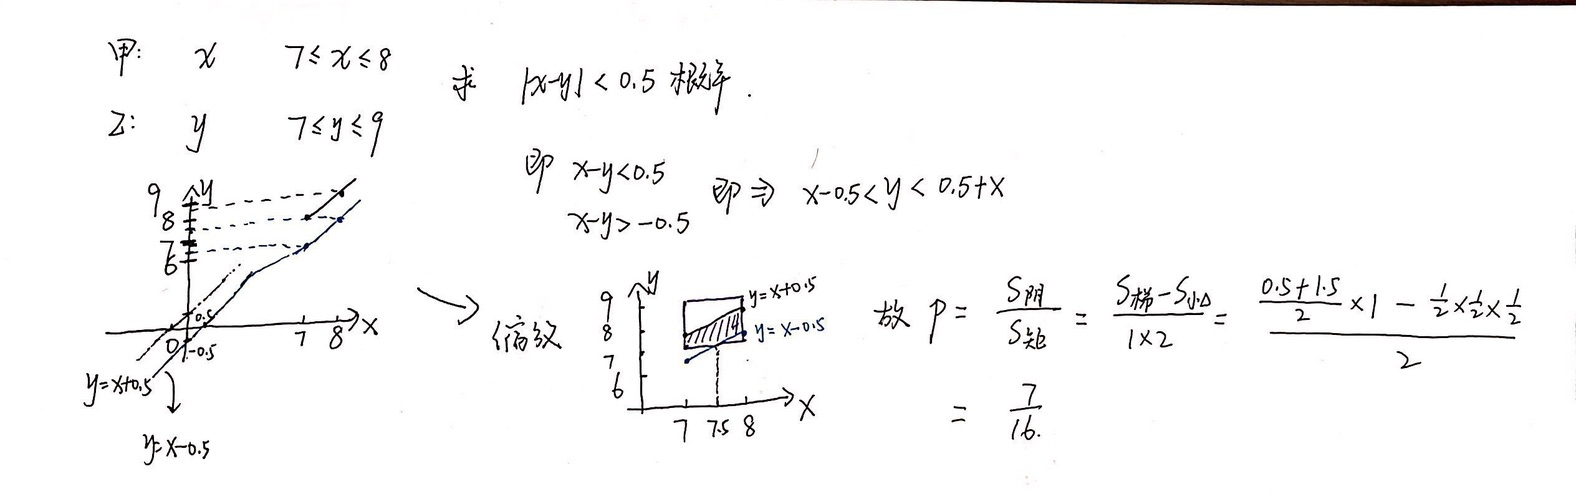 甲: x 7≤x≤8
乙: y 7≤y≤9
求 |x-y|<0.5 概率.
即 x-y<0.5
x-y>-0.5
即 ⇒ x-0.5<y<0.5+x
9 y
8
7
6
0.5
0 -0.5 7 8 x
y=x+0.5
y=x-0.5
缩放
9 y
8
7
6
y=x+0.5
y=x-0.5
7 7.5 8 x
故 P = S阴/S矩 = (S梯-S小△)/(1×2) = ((0.5+1.5)/2 ×1 - 1/2×1/2×1/2)/2
= 7/16.